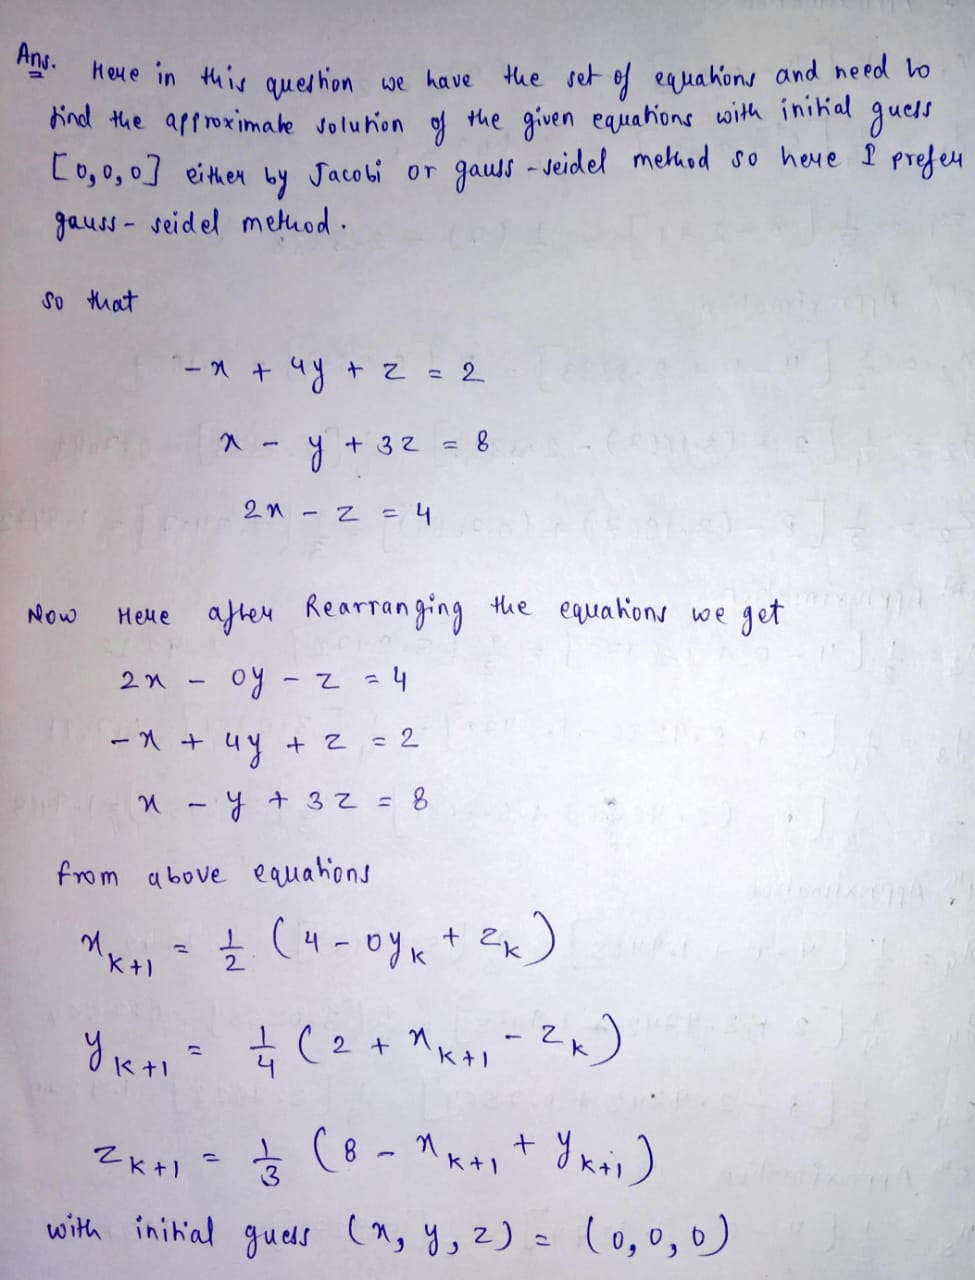 Ans. Here in this question we have the set of equations and need to
find the approximate solution of the given equations with initial guess
[0,0,0] either by Jacobi or gauss-seidel method so here I prefer
gauss-seidel method.
so that
-x + 4y + z = 2
x - y + 3z = 8
2x - z = 4
Now Here after Rearranging the equations we get
2x - 0y - z = 4
-x + 4y + z = 2
x - y + 3z = 8
from above equations
x_{k+1} = 1/2 (4 - 0y_k + z_k)
y_{k+1} = 1/4 (2 + x_{k+1} - z_k)
z_{k+1} = 1/3 (8 - x_{k+1} + y_{k+1})
with initial guess (x, y, z) = (0,0,0)